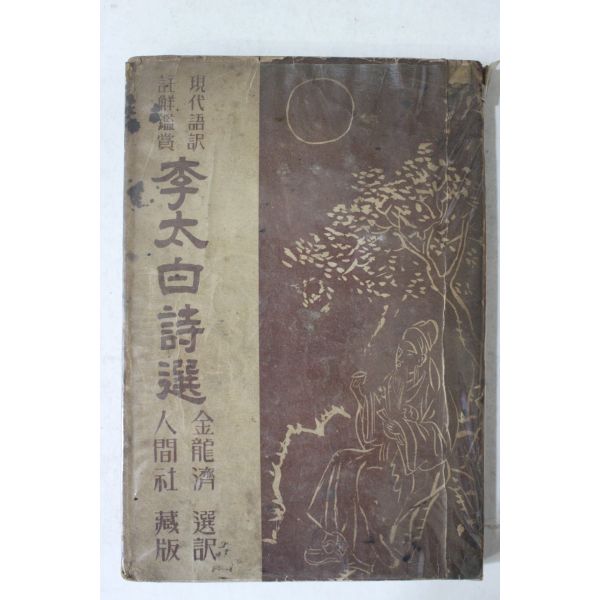 現代語訳
註解鑑賞
李太白詩選
金龍濟 選訳
人間社 藏版